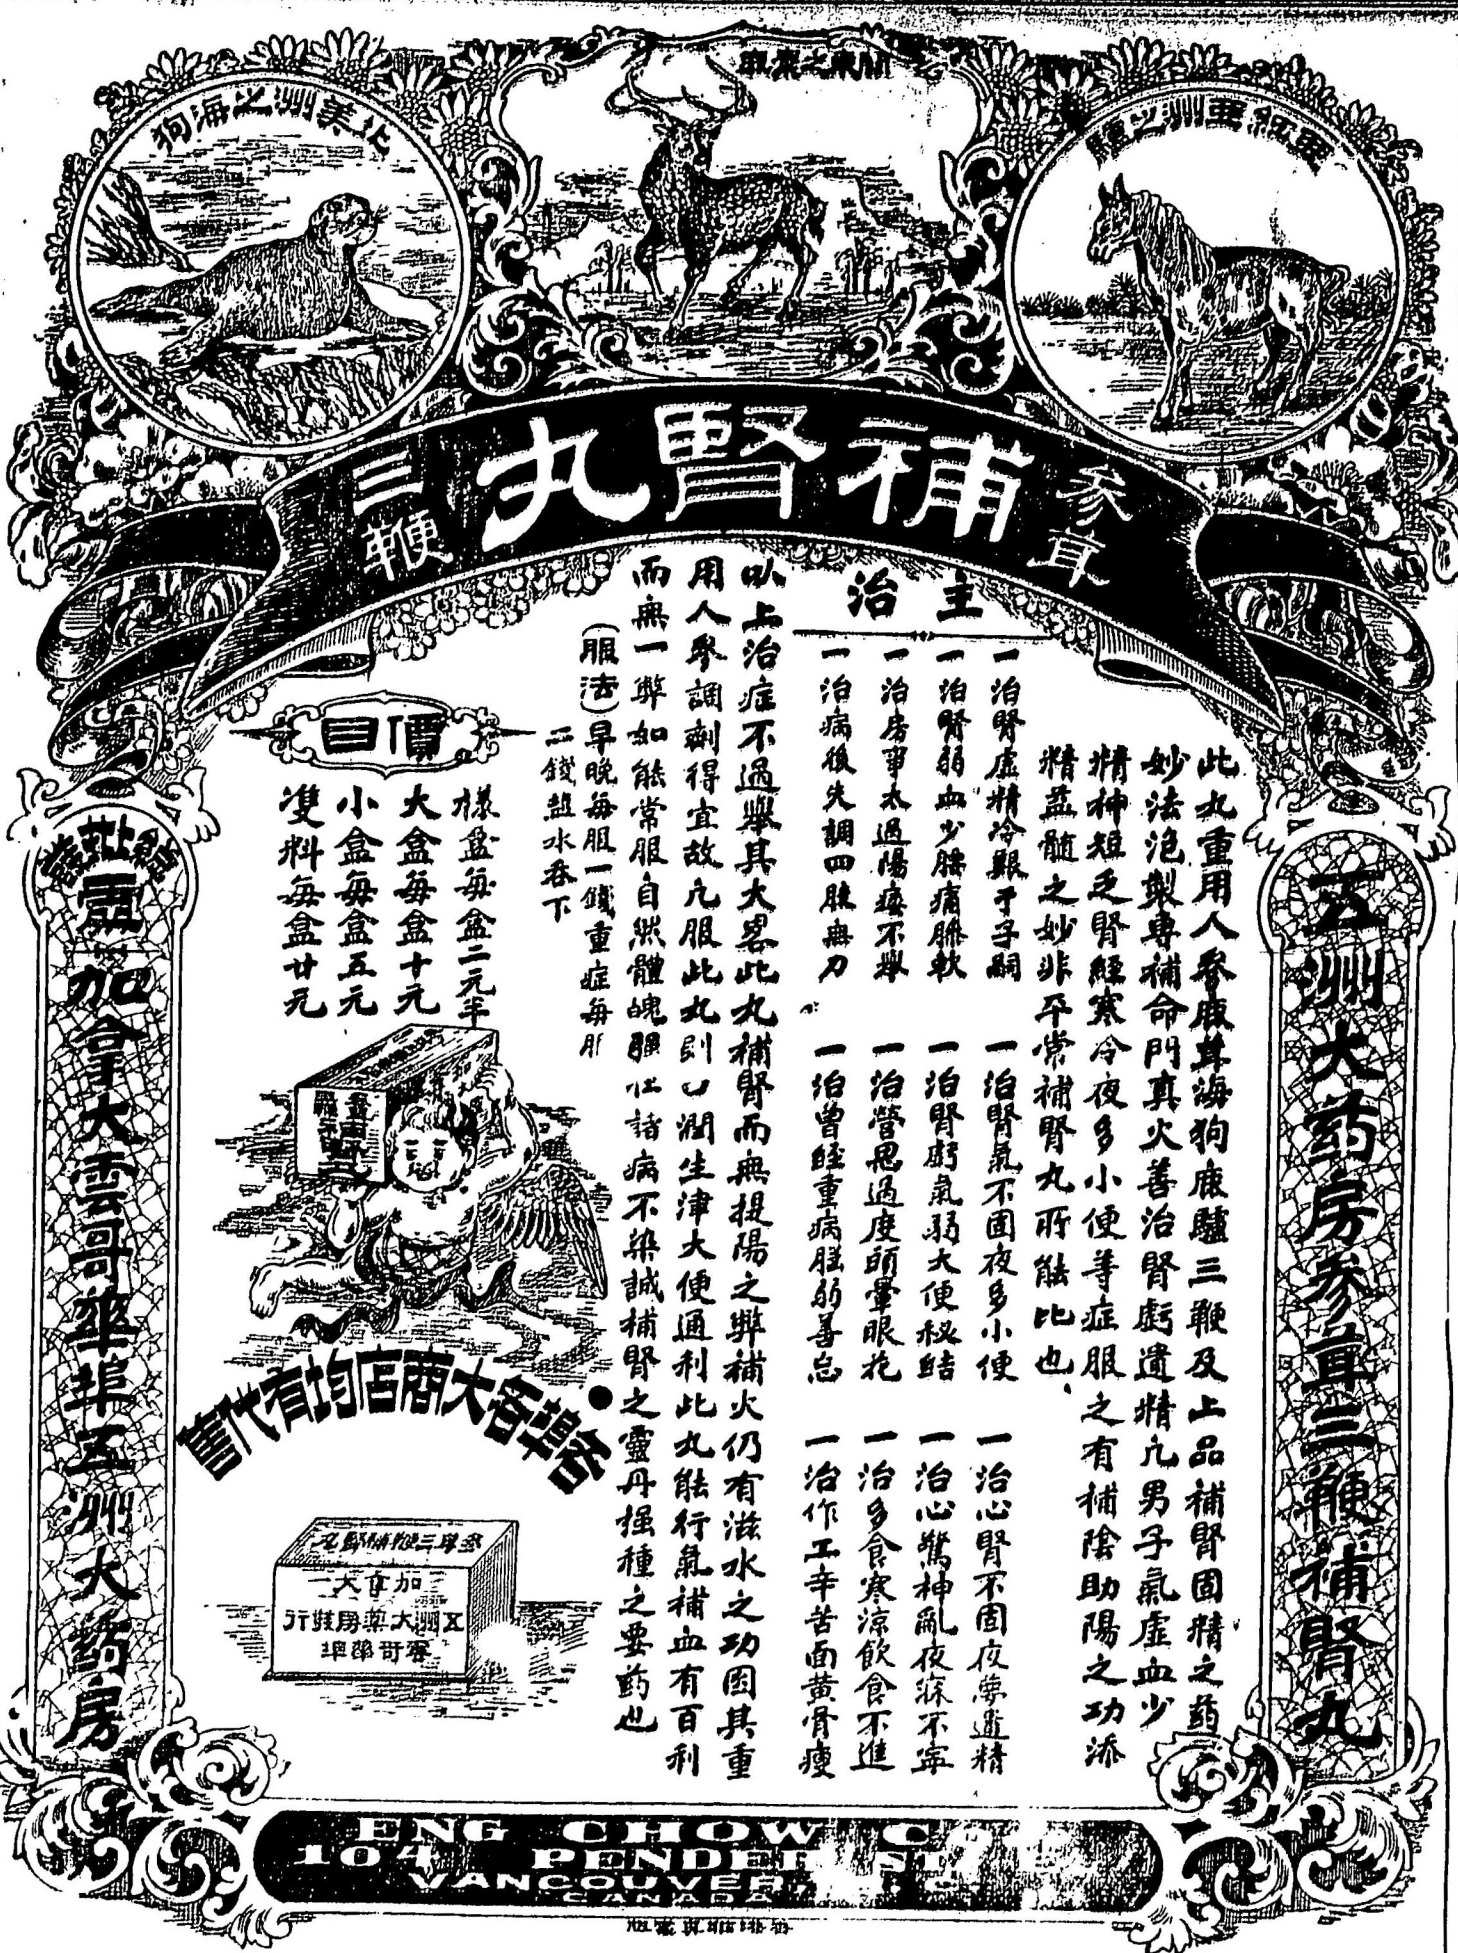 北美洲之海狗
關東之鹿
亞細亞洲之驢
參茸
補腎丸
三鞭
五洲大药房參茸三鞭補腎丸
此丸重用人參鹿茸海狗鹿驢三鞭及上品補腎固精之葯
妙法泡製專補命門真火善治腎虧遺精凢男子氣虛血少
精神短乏腎經寒冷夜多小便等症服之有補陰助陽之功添
精益髓之妙非平常補腎丸所能比也
主治
一治腎虛精冷艱于子嗣
一治腎氣不固夜多小便
一治心腎不固夜夢遺精
一治腎弱血少腰痛脚軟
一治腎虧氣弱大便秘結
一治心驚神亂夜寐不寧
一治房事太過陽痿不舉
一治營思過度頭暈眼花
一治多食寒涼飲食不進
一治病後失調四肢無力
一治曾經重病體弱善忘
一治作工辛苦面黄骨瘦
以上治症不過舉其大畧此丸補腎而無提陽之弊補火仍有滋水之功因其重
用人參調劑得宜故凢服此丸則潤生津大便通利此丸能行氣補血有百利
而無一弊如能常服自然體魄強壯諸病不染誠補腎之靈丹强種之要葯也
(服法)早晚每服一錢重症每服
二錢盐水吞下
價目
樣盒每盒二元半
大盒每盒十元
小盒每盒五元
雙料每盒廿元
各埠各大商店均有代售
參茸三鞭補腎丸
加拿大
五洲大藥房裝行
雲哥華埠
總批發處
加拿大雲哥華埠五洲大葯房
ENG CHOW
104 PENDER
VANCOUVER,
CANADA